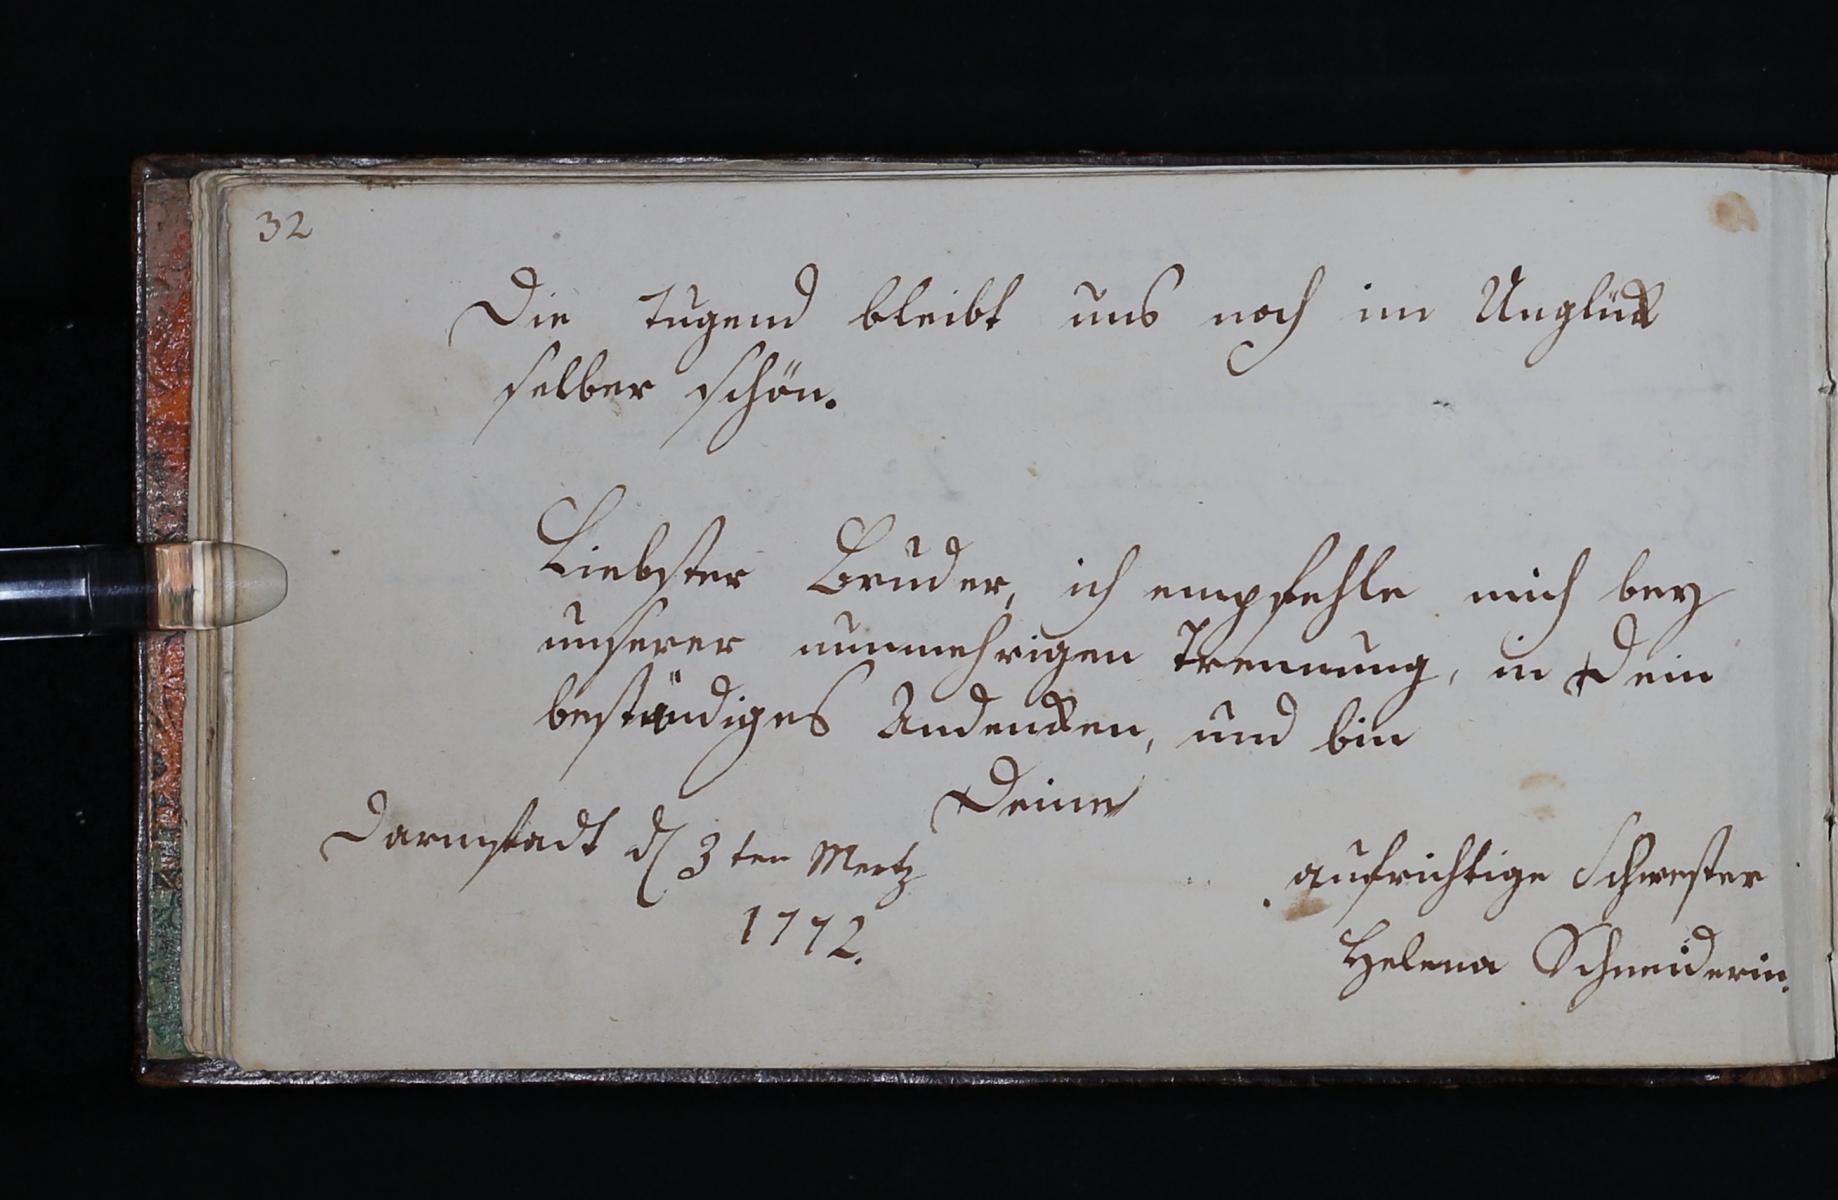 32
Die Tugend bleibt uns noch im Unglück
selber schön.
Liebster Bruder, ich empfehle mich bey
unserer nunmehrigen Trennung, in Dein
beständiges Andencken, und bin
Deine
Darmstadt d 3ten Mertz
1772.
aufrichtige Schwester
Helena Schneiderin.